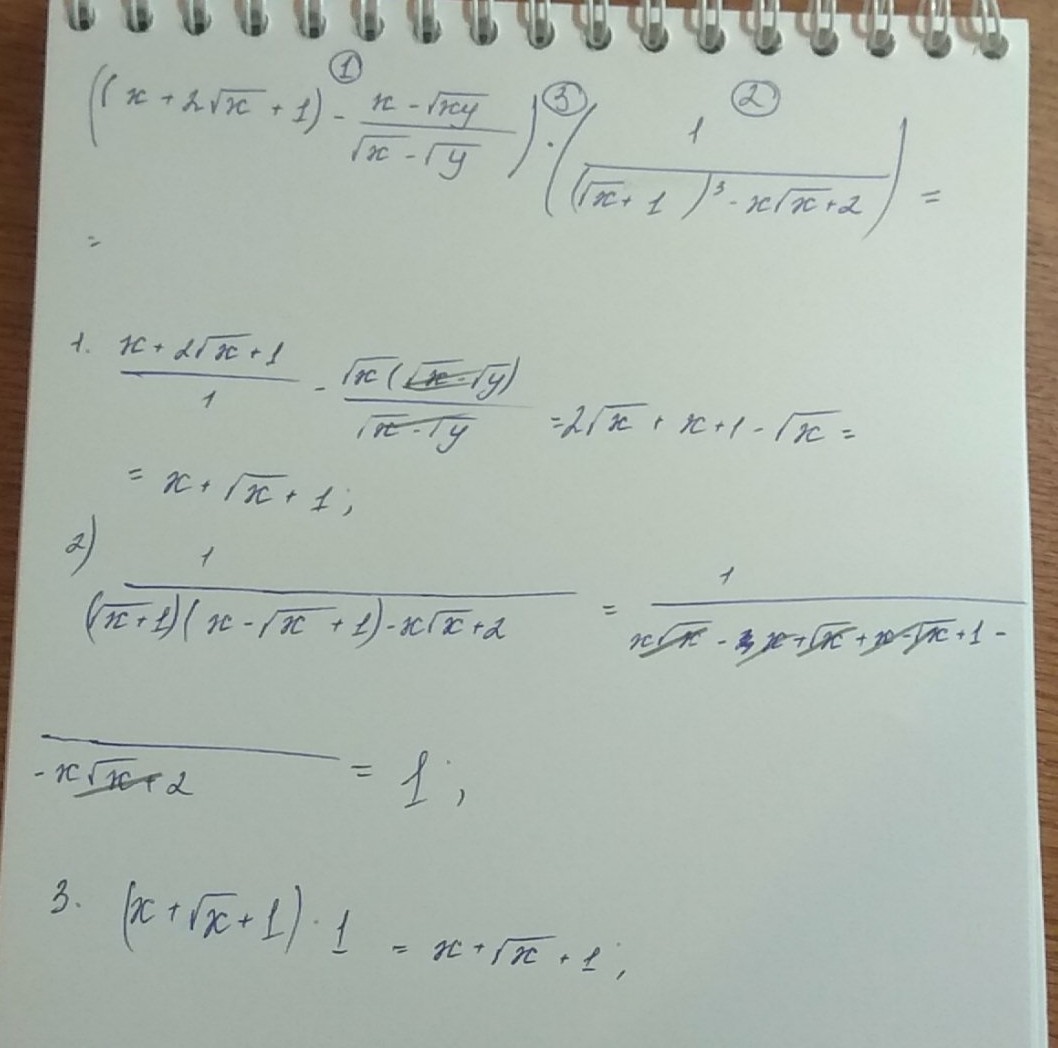 ((x + 2√x + 1) - (x - √xy)/(√x - √y)) · (1/((√x + 1)³ - x√x + 2)) =
① ③ ②
=
1. (x + 2√x + 1)/1 - (√x(√x - √y))/(√x - √y) = 2√x + x + 1 - √x =
= x + √x + 1;
2) 1/((√x + 1)(x - √x + 1) - x√x + 2) = 1/(x√x - x + √x + x - √x + 1 -
- x√x + 2) = 1;
3. (x + √x + 1) · 1 = x + √x + 1;